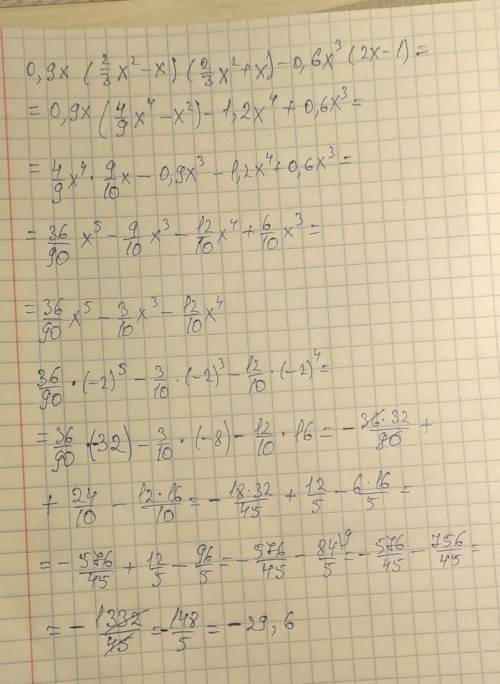 0,9x (2/3 x² - x) (2/3 x² + x) - 0,6x³ (2x - 1) =
= 0,9x (4/9 x⁴ - x²) - 1,2x⁴ + 0,6x³ =
= 4/9 x⁴ · 9/10 x - 0,9x³ - 1,2x⁴ + 0,6x³ =
= 36/90 x⁵ - 9/10 x³ - 12/10 x⁴ + 6/10 x³ =
= 36/90 x⁵ - 3/10 x³ - 12/10 x⁴
36/90 · (-2)⁵ - 3/10 · (-2)³ - 12/10 · (-2)⁴ =
= 36/90 · (-32) - 3/10 · (-8) - 12/10 · 16 = - 36·32/90 +
+ 24/10 - 12·16/10 = - 18·32/45 + 12/5 - 6·16/5 =
= - 576/45 + 12/5 - 96/5 = - 576/45 - 84⁹/5 = - 576/45 - 756/45 =
= - 1332/45 = - 148/5 = - 29,6